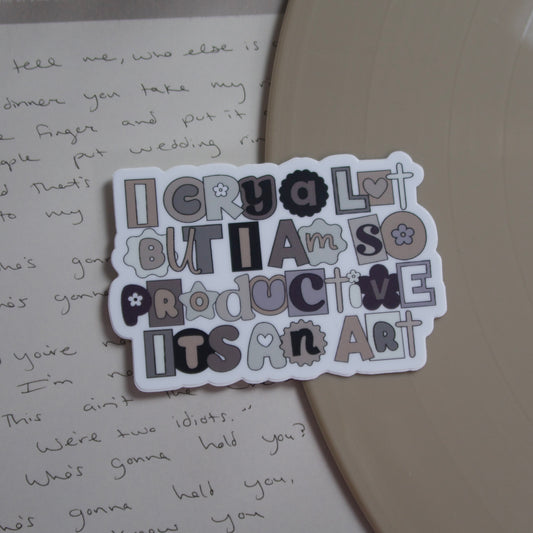 tell me, who else is
dinner you take my
finger and put it
put wedding
That's
to my
I CRY A LOT
BUT I AM SO
PRODUCTIVE
ITS AN ART
gonna
gonna
you're
I'm
This ain't the
We're two idiots..
Who's gonna hold you?
gonna hold you,
know you